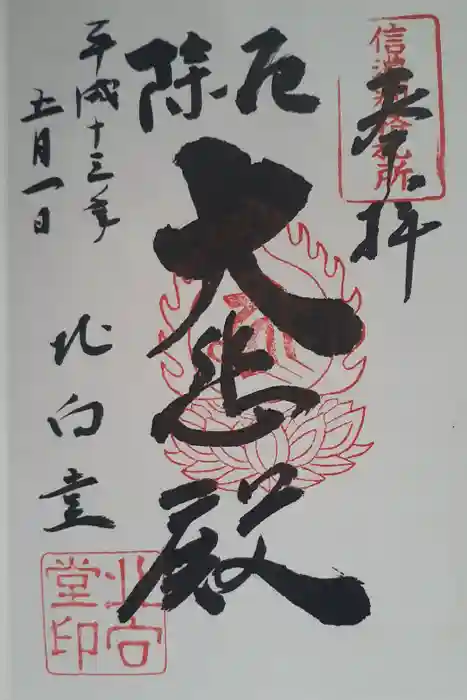 奉拝
信濃別格札所
厄除
大悲殿
平成十三年
五月一日
北向堂
北向堂印